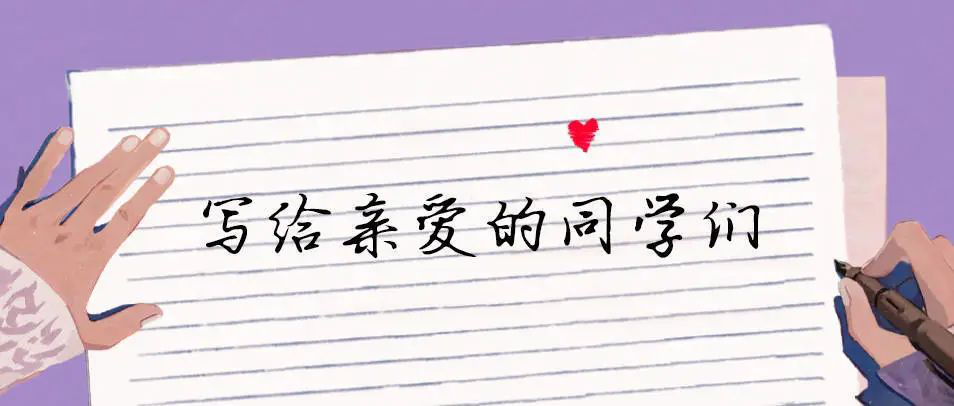 写给亲爱的同学们